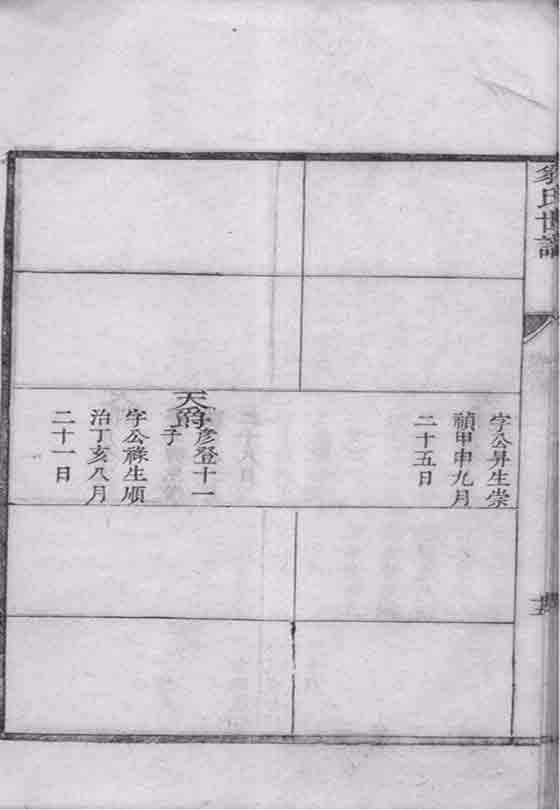 氏世譜
字公昇生崇
禎甲申九月
二十五日
天爵
彦登十一
子
字公祿生順
治丁亥八月
二十一日